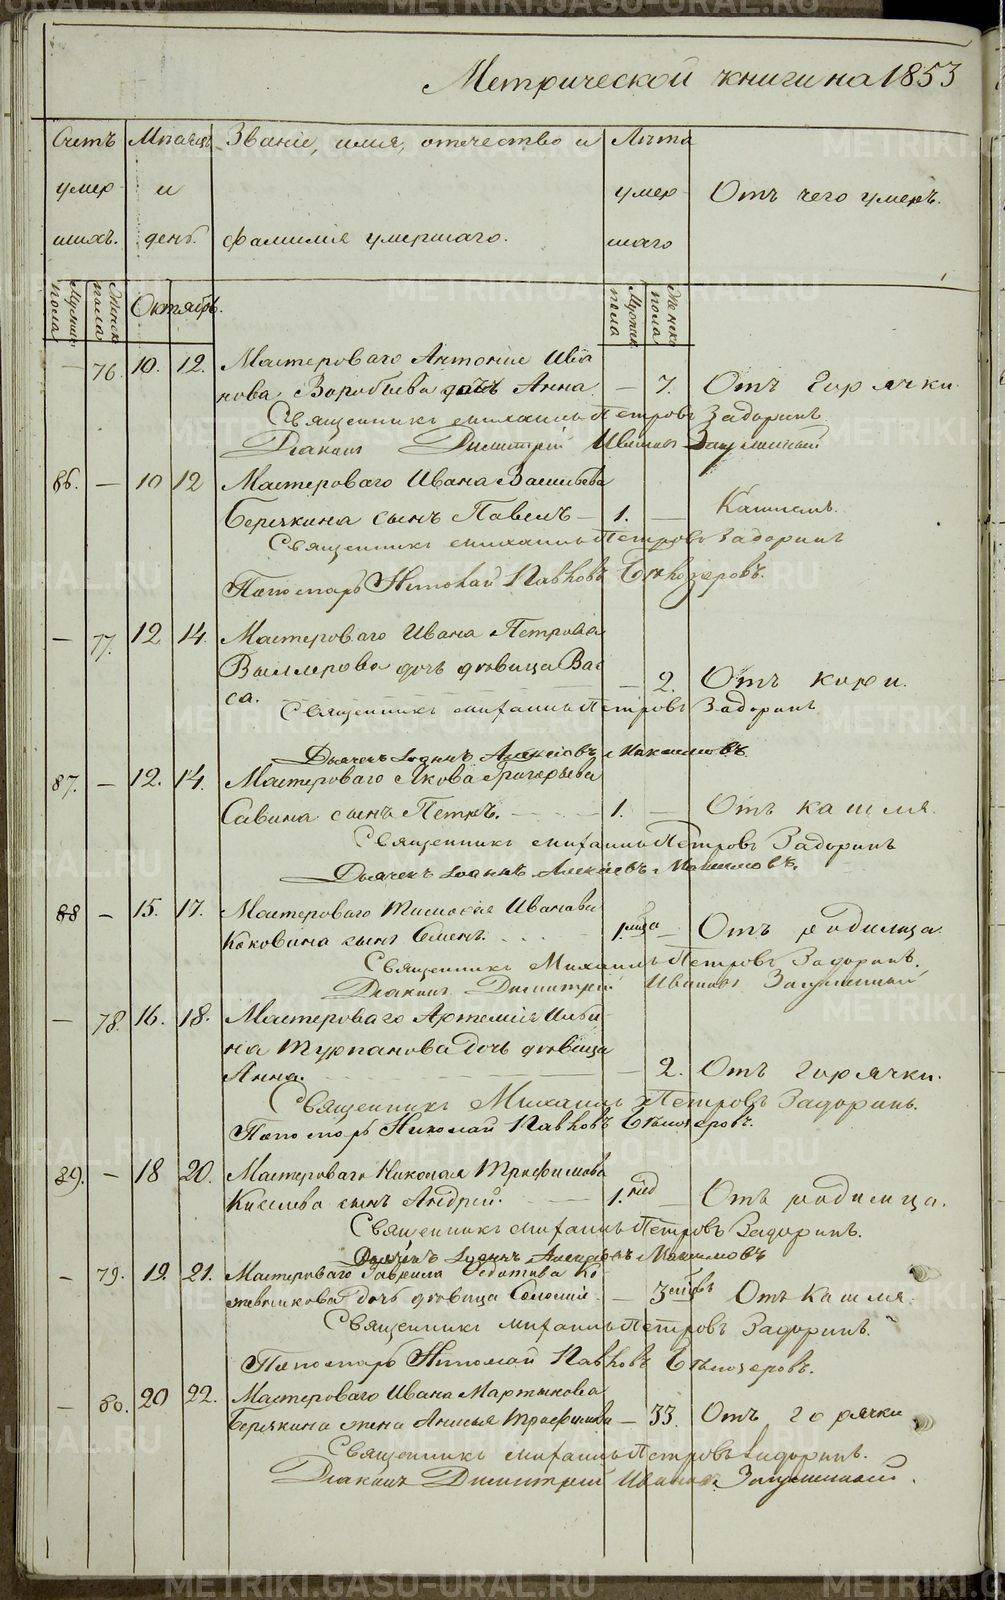 Метрической книги на 1853
Счетъ Мѣсяцъ Званіе, имя, отчество и Лѣта
умер и умер Отъ чего умеръ.
шихъ. день. фамилія умершаго. шаго
Мужеск. пола Женск. пола Октябрь. Мужеск. пола Женск. пола
— 76. 10. 12. Мастероваго Антонія Ива
нова Воробьева дочь Анна — 7. Отъ горячки.
Священникъ Михаилъ Петровъ Задоринъ
Діаконъ Димитрій Ивановъ
86. — 10 12 Мастероваго Ивана Васильева
Берсткина сынъ Павелъ — 1. — Кашлемъ.
Священникъ Михаилъ Петровъ Задоринъ
Пономарь Николай Павловъ Бѣлозеровъ.
— 77. 12. 14. Мастероваго Ивана Петрова
дочь дѣвица Вас
са. — 2. Отъ кори.
Священникъ Михаилъ Петровъ Задоринъ
Дьячекъ Іоаннъ Алексѣевъ Максимовъ
87. — 12. 14. Мастероваго Якова Григорьева
Савина сынъ Петръ. 1. — Отъ кашля.
Священникъ Михаилъ Петровъ Задоринъ
Дьячекъ Іоаннъ Алексѣевъ Максимовъ.
88 — 15. 17. Мастероваго Тимофея Иванова
Коковина сынъ Семенъ. 1. — Отъ родимца.
Священникъ Михаилъ Петровъ Задоринъ.
Діаконъ Димитрій Ивановъ
— 78. 16. 18. Мастероваго Артемія Ильи
на Турпанова дочь дѣвица
Анна. — 2. Отъ горячки.
Священникъ Михаилъ Петровъ Задоринъ.
Пономарь Николай Павловъ Бѣлозеровъ.
89. — 18 20. Мастероваго Николая Трофимова
Киселева сынъ Андрей. 1. нед — Отъ родимца.
Священникъ Михаилъ Петровъ Задоринъ.
Дьячекъ Іоаннъ Алексѣевъ Максимовъ
— 79. 19. 21. Мастероваго Гавріила Федотова Ко
жевникова дочь дѣвица — 3 Отъ кашля.
Священникъ Михаилъ Петровъ Задоринъ.
Пономарь Николай Павловъ Бѣлозеровъ.
— 80. 20 22. Мастероваго Ивана Мартынова
жена Анисья Трофимова — 33. Отъ горячки
Священникъ Михаилъ Петровъ Задоринъ.
Діаконъ Димитрій Ивановъ
METRIKI.GASO-URAL.RU